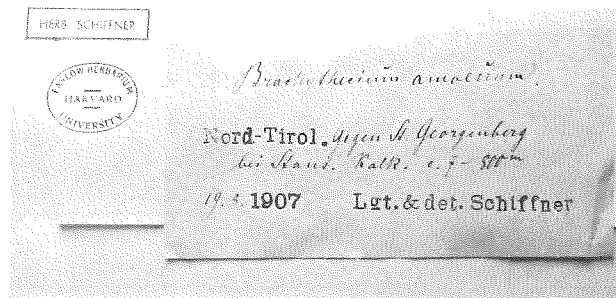 HERB. SCHIFFNER
FARLOW HERBARIUM
HARVARD
UNIVERSITY
Brachythecium amoenum.
Nord-Tirol. gegen St Georgenberg
bei Stans. Kalk. c. f - 800m
19. 4. 1907 Lgt. & det. Schiffner